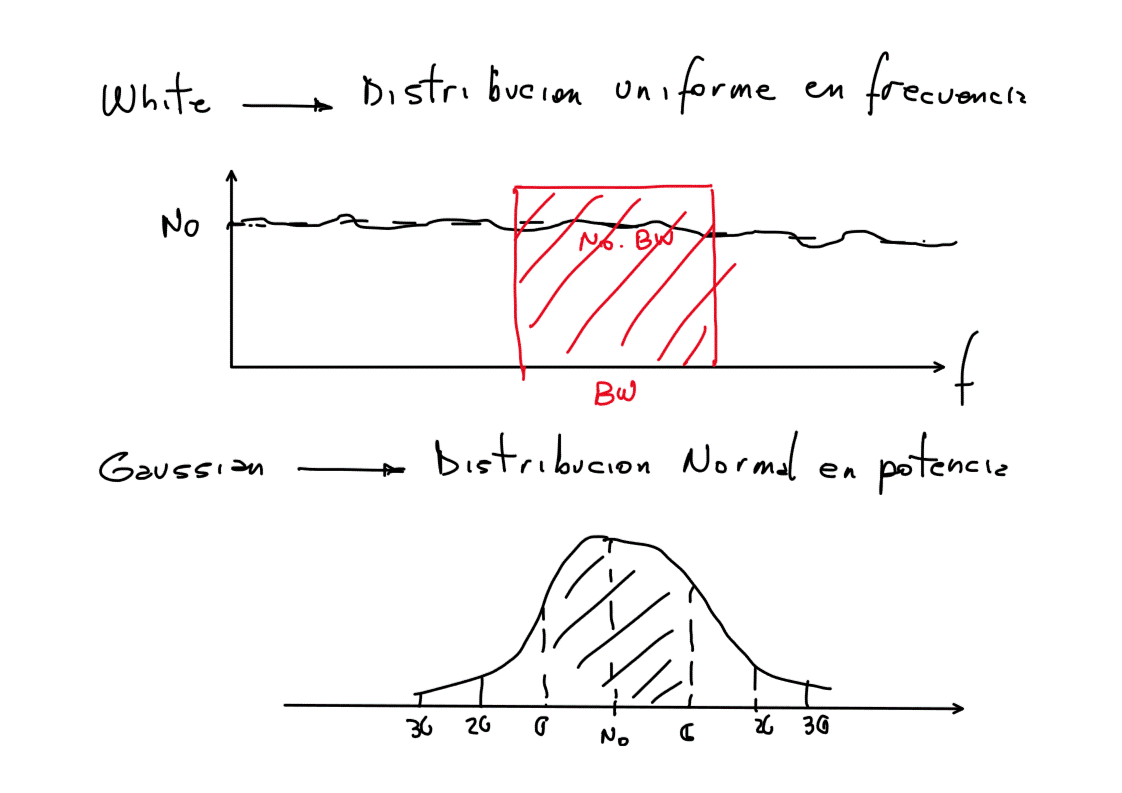 White → Distribucion uniforme en frecuencia
No
No. BW
f
BW
Gaussian → Distribucion Normal en potencia
3σ 2σ σ No σ 2σ 3σ